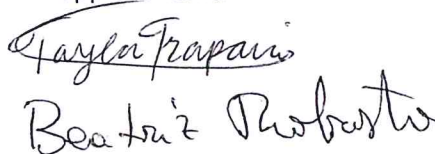 Tayla Trapani
Beatriz Robusto